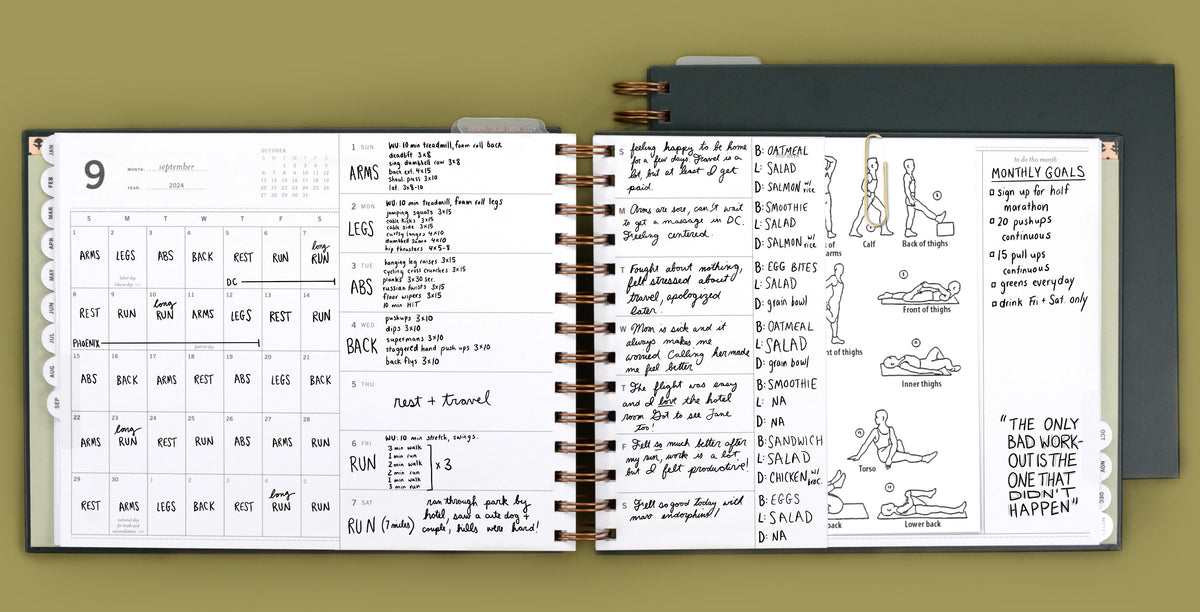 9
MONTH: september
YEAR: 2024
OCTOBER
S M T W T F S
1 2 3 4 5
6 7 8 9 10 11 12
13 14 15 16 17 18 19
20 21 22 23 24 25 26
27 28 29 30 31
JAN
FEB
MAR
APR
MAY
JUN
JUL
AUG
SEP
S M T W T F S
1 2 3 4 5 6 7
ARMS LEGS ABS BACK REST RUN long RUN
labor day
labour day
DC
8 9 10 11 12 13 14
REST RUN long RUN ARMS LEGS REST RUN
PHOENIX
patriot day
15 16 17 18 19 20 21
ABS BACK ARMS REST ABS LEGS BACK
22 23 24 25 26 27 28
ARMS long RUN REST RUN ABS ARMS RUN
29 30 1 2 3 4 5
REST ARMS LEGS BACK REST long RUN RUN
national day
for truth and
reconciliation
1 SUN
ARMS
WU: 10 min treadmill, foam roll back
deadlift 3x8
sing. dumbbell row 3x8
back ext. 4x15
shoul. press 3x10
lat. 3x8-10
2 MON
LEGS
WU: 10 min treadmill, foam roll legs
jumping squats 3x15
cable kicks 3x15
cable side 3x15
curtsy lunges 4x10
dumbbell sumo 4x10
hip thrusters 4x5-8
3 TUE
ABS
hanging leg raises 3x15
cycling cross crunches 3x15
planks 3x30 sec.
russian twists 3x15
floor wipers 3x15
10 min HIT
4 WED
BACK
pushups 3x10
dips 3x10
supermans 3x10
staggered hand push ups 3x10
back flys 3x10
5 THU
rest + travel
6 FRI
RUN
WU: 10 min stretch, swings.
3 min walk
1 min run
2 min walk
2 min run
1 min walk
3 min run
x 3
7 SAT
RUN (7 miles)
ran through park by
hotel, saw a cute dog +
couple, hills were hard!
S
feeling happy to be home
for a few days. Travel is a
lot, but at least I get
paid.
B: OATMEAL
L: SALAD
D: SALMON w/ rice
M
Arms are sore, can't wait
to get a massage in DC.
Feeling centered.
B: SMOOTHIE
L: SALAD
D: SALMON w/ rice
T
Fought about nothing,
felt stressed about
travel, apologized
later.
B: EGG BITES
L: SALAD
D: grain bowl
W
Mom is sick and it
always makes me
worried. Calling her made
me feel better
B: OATMEAL
L: SALAD
D: grain bowl
T
The flight was easy
and I love the hotel
room. Got to see Jane
too!
B: SMOOTHIE
L: NA
D: NA
F
Felt so much better after
my run, work is a lot,
but I felt productive!
B: SANDWICH
L: SALAD
D: CHICKEN w/ broc.
S
I felt so good today with
max endorphins!
B: EGGS
L: SALAD
D: NA
of
arms
Calf
Back of thighs
Front of thighs
nt of thighs
Inner thighs
Torso
back
Lower back
to do this month
MONTHLY GOALS
sign up for half
marathon
20 pushups
continuous
15 pull ups
continuous
greens everyday
drink Fri + Sat. only
"THE ONLY
BAD WORK-
OUT IS THE
ONE THAT
DIDN'T
HAPPEN"
OCT
NOV
DEC
NOTES